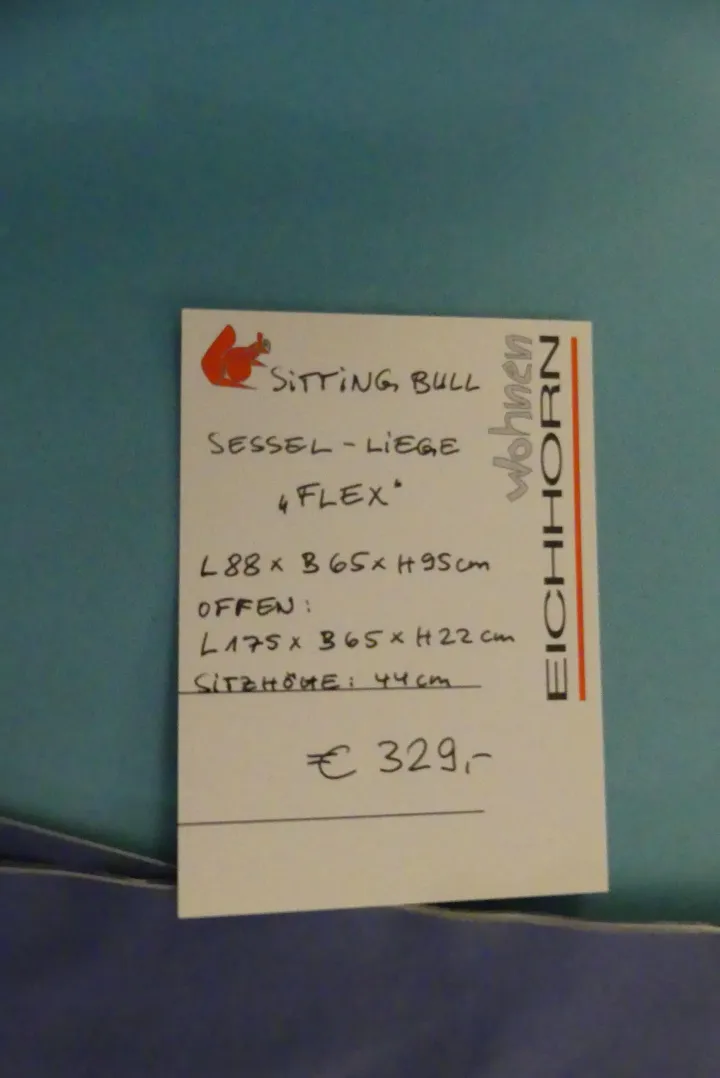 SITTING BULL
SESSEL-LIEGE
„FLEX“
L88 x B65 x H95cm
OFFEN:
L175 x B65 x H22cm
SITZHÖHE: 44cm
€ 329,-
wohnen
EICHHORN